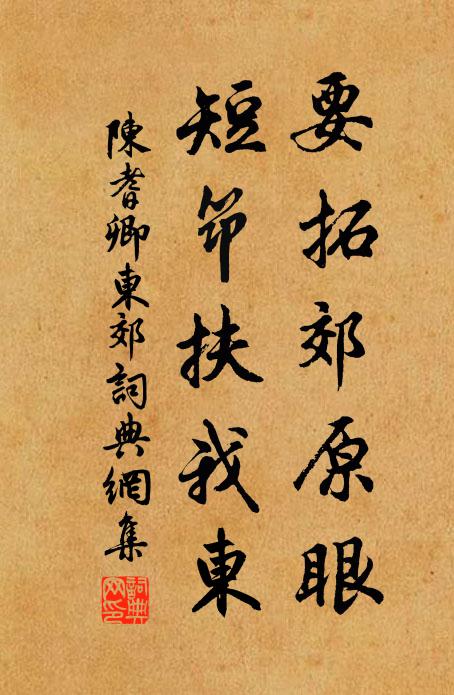 要拓郊原眼
短筇扶我東
陳耆卿東郊詞典網集
詞典网印